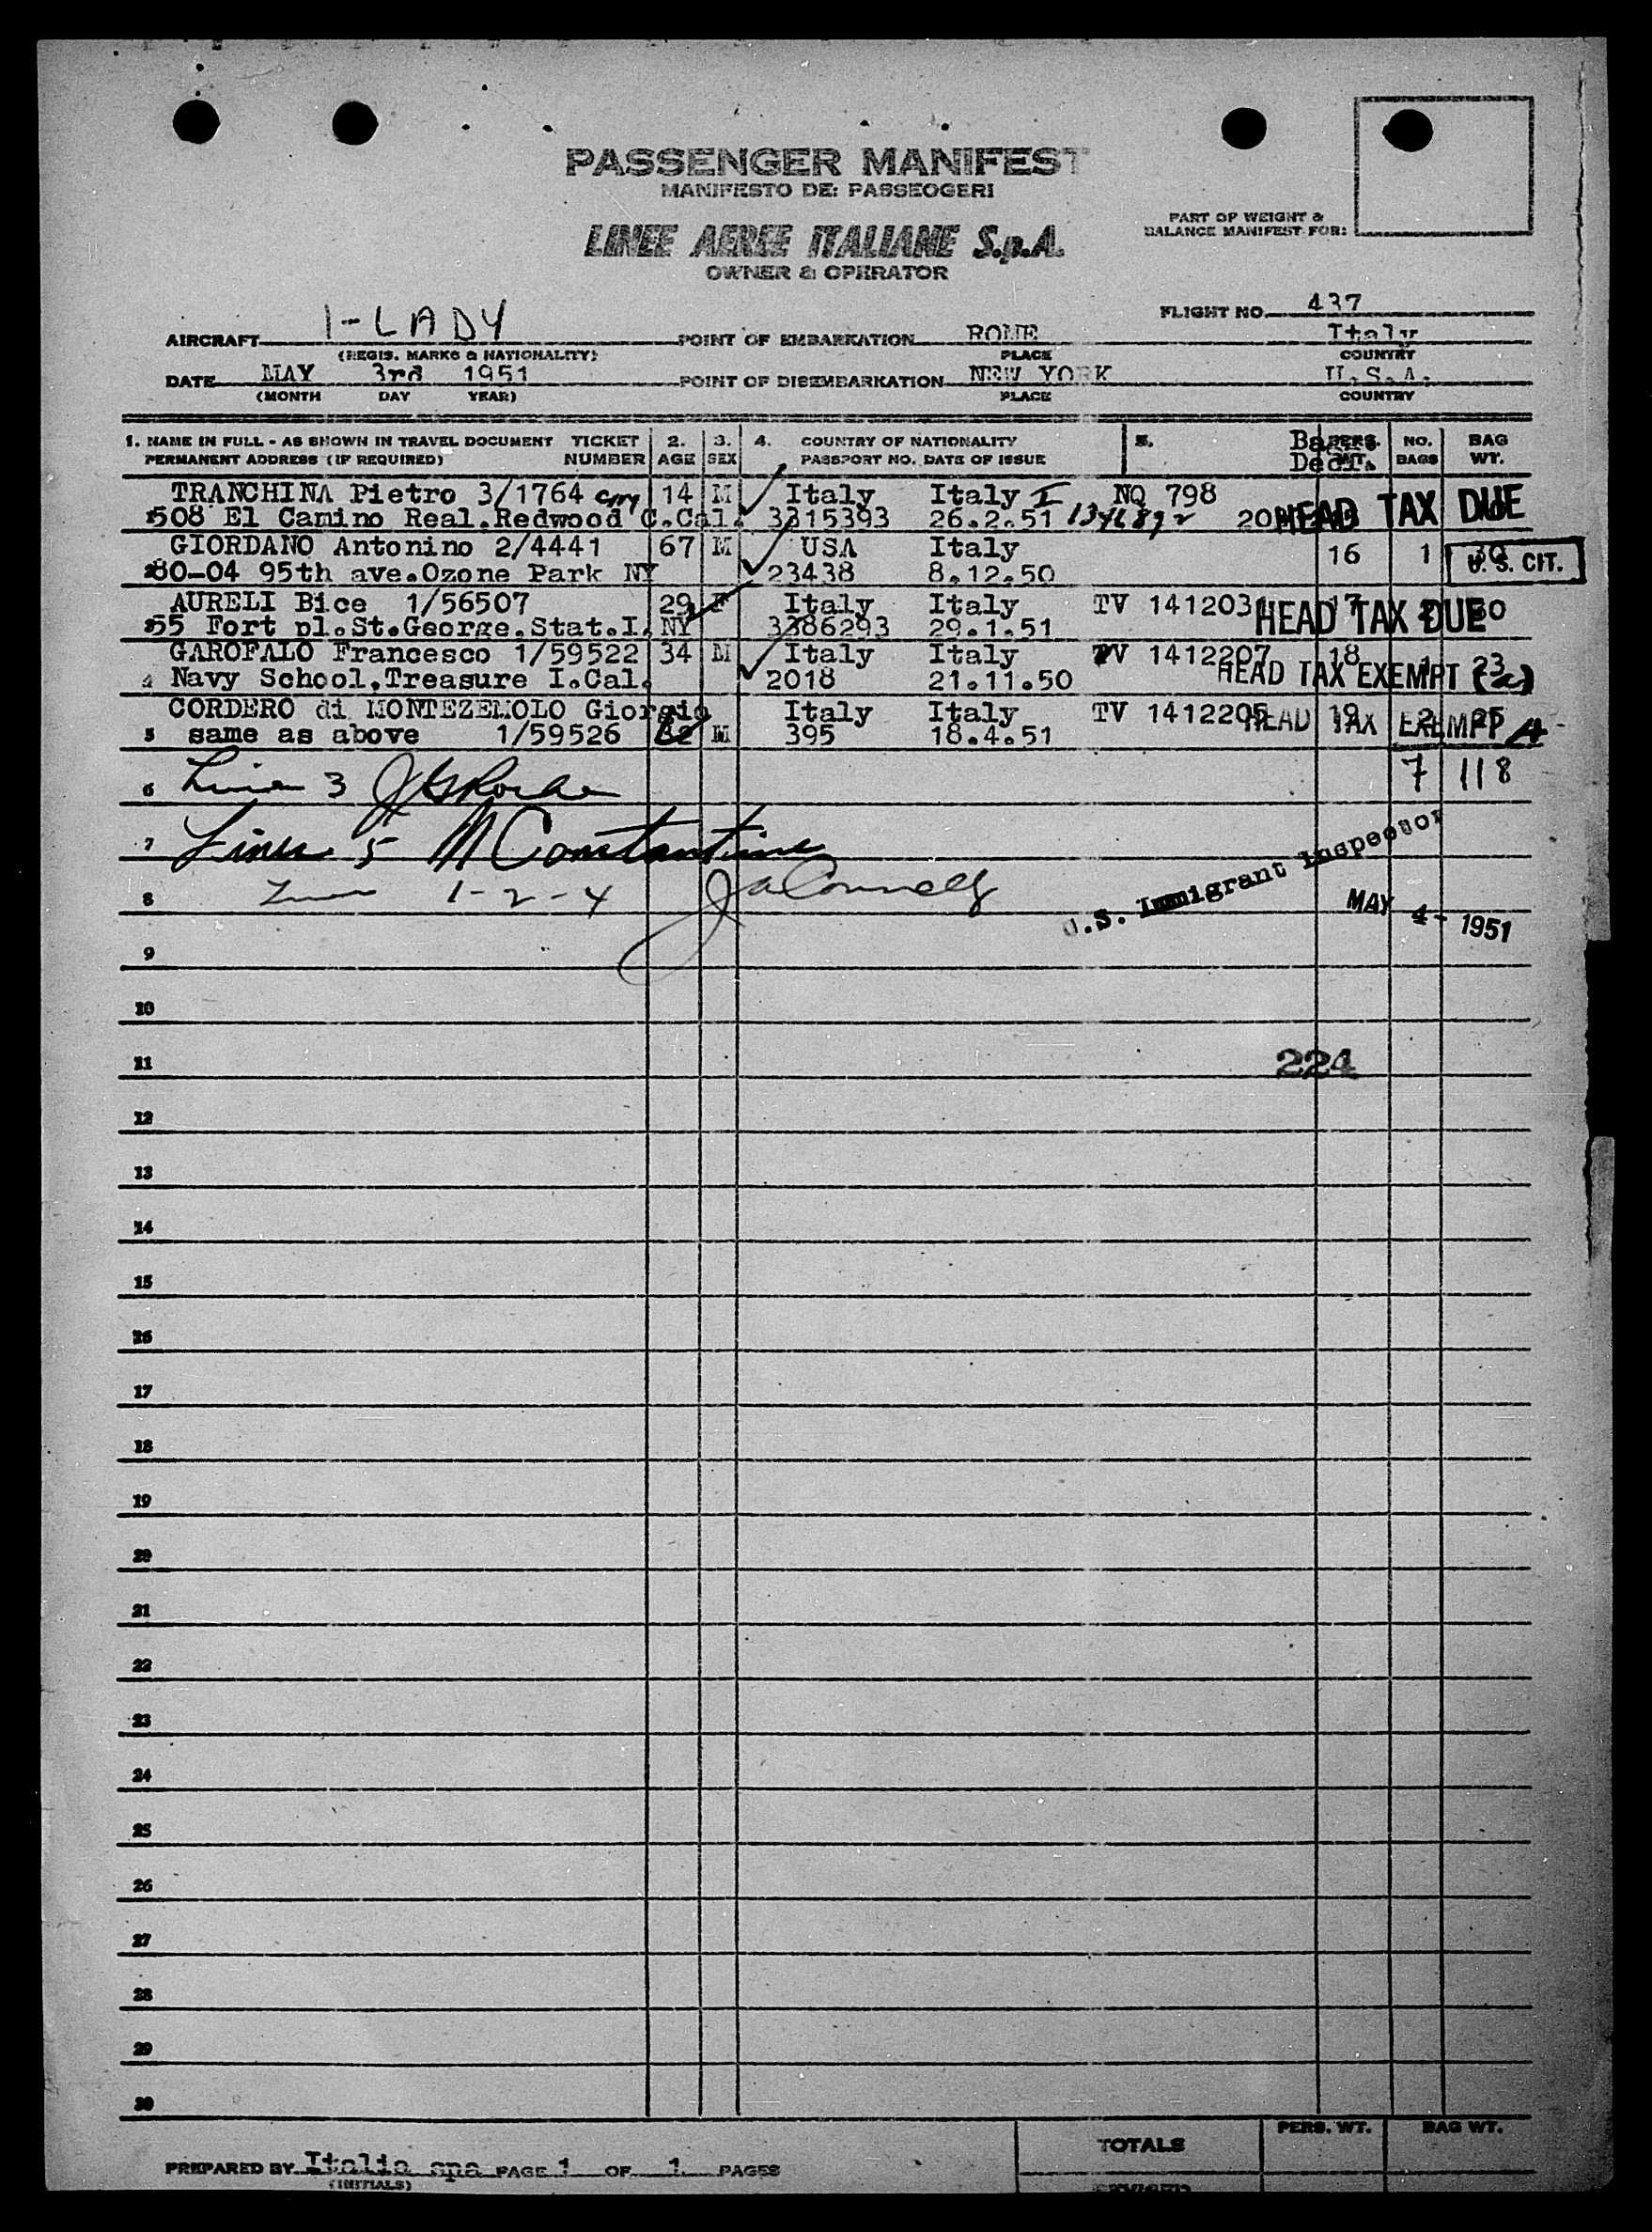 PASSENGER MANIFEST
MANIFESTO DE: PASSEOGERI
LINEE AEREE ITALIANE S.p.A.
OWNER & OPERATOR
PART OF WEIGHT &
BALANCE MANIFEST FOR:
FLIGHT NO. 437
AIRCRAFT I-LADY POINT OF EMBARKATION ROME Italy
(REGIS. MARKS & NATIONALITY) PLACE COUNTRY
DATE MAY 3rd 1951 POINT OF DISEMBARKATION NEW YORK U.S.A.
(MONTH DAY YEAR) PLACE COUNTRY
1. NAME IN FULL - AS SHOWN IN TRAVEL DOCUMENT TICKET 2. 3. 4. COUNTRY OF NATIONALITY 5. PERS. NO. BAG
PERMANENT ADDRESS (IF REQUIRED) NUMBER AGE SEX PASSPORT NO. DATE OF ISSUE Decl. WT. BAGS WT.
TRANCHINA Pietro 3/1764 14 M Italy Italy I NQ 798
508 El Camino Real.Redwood C.Cal. 3315393 26.2.51 HEAD TAX DUE
GIORDANO Antonino 2/4441 67 M USA Italy 16 1 30
80-04 95th ave.Ozone Park NY 23438 8.12.50 U.S. CIT.
AURELI Bice 1/56507 29 F Italy Italy TV 1412031 17 HEAD TAX DUE
55 Fort pl.St.George.Stat.I. NY 3386293 29.1.51
GAROFALO Francesco 1/59522 34 M Italy Italy TV 1412207 18 23
4 Navy School,Treasure I.Cal. 2018 21.11.50 HEAD TAX EXEMPT
CORDERO di MONTEZEMOLO Giorgio Italy Italy TV 1412205 19 2 25 HEAD TAX EXEMPT A
5 same as above 1/59526 32 M 395 18.4.51
6 Line 3 7 118
7 Line 5 M Constantine
8 Lines 1-2-4 J A Connelly
U.S. Immigrant Inspector
MAY 4 - 1951
9
10
11 224
12
13
14
15
16
17
18
19
20
21
22
23
24
25
26
27
28
29
30
TOTALS PERS. WT. BAG WT.
PREPARED BY Italia spa PAGE 1 OF 1 PAGES
(INITIALS)